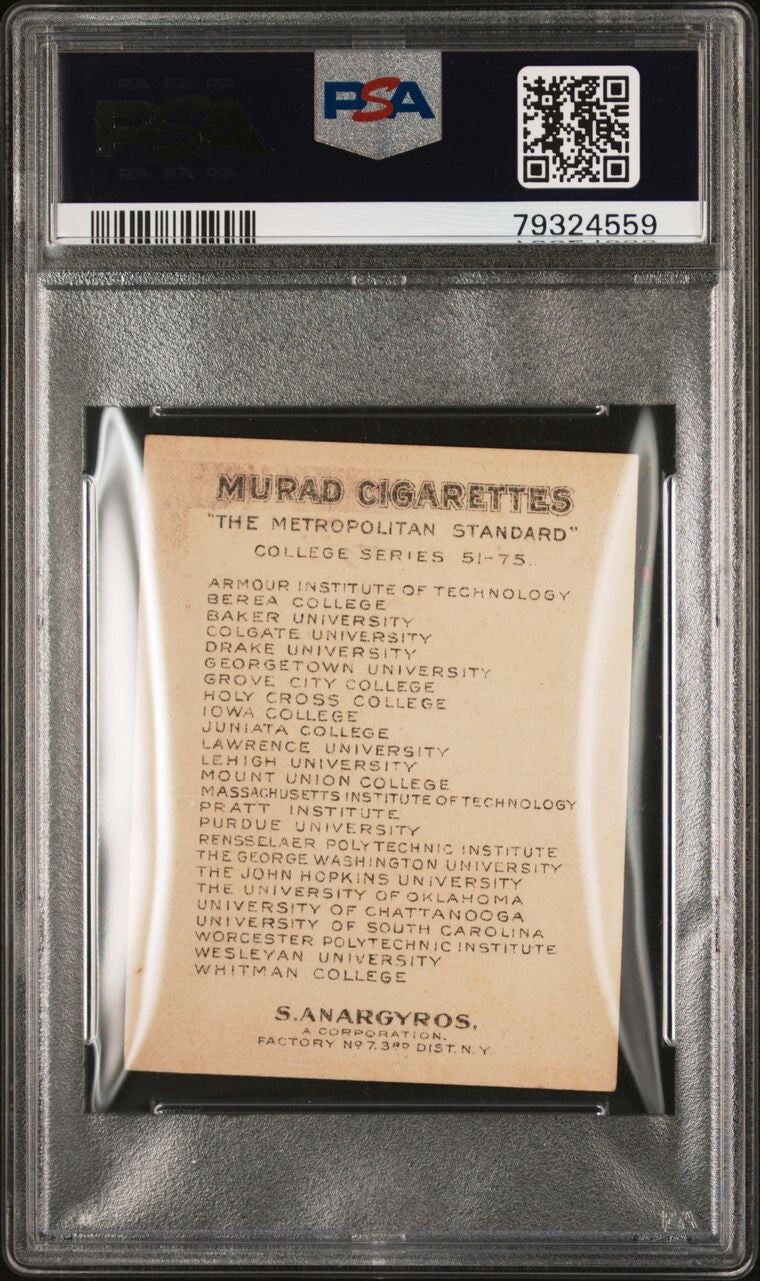 PSA
79324559
MURAD CIGARETTES
"THE METROPOLITAN STANDARD"
COLLEGE SERIES 51-75.
ARMOUR INSTITUTE OF TECHNOLOGY
BEREA COLLEGE
BAKER UNIVERSITY
COLGATE UNIVERSITY
DRAKE UNIVERSITY
GEORGETOWN UNIVERSITY
GROVE CITY COLLEGE
HOLY CROSS COLLEGE
IOWA COLLEGE
JUNIATA COLLEGE
LAWRENCE UNIVERSITY
LEHIGH UNIVERSITY
MOUNT UNION COLLEGE
MASSACHUSETTS INSTITUTE OF TECHNOLOGY
PRATT INSTITUTE
PURDUE UNIVERSITY
RENSSELAER POLYTECHNIC INSTITUTE
THE GEORGE WASHINGTON UNIVERSITY
THE JOHN HOPKINS UNIVERSITY
THE UNIVERSITY OF OKLAHOMA
UNIVERSITY OF CHATTANOOGA
UNIVERSITY OF SOUTH CAROLINA
WORCESTER POLYTECHNIC INSTITUTE
WESLEYAN UNIVERSITY
WHITMAN COLLEGE
S. ANARGYROS,
A CORPORATION.
FACTORY Nº 7. 3RD DIST. N. Y.